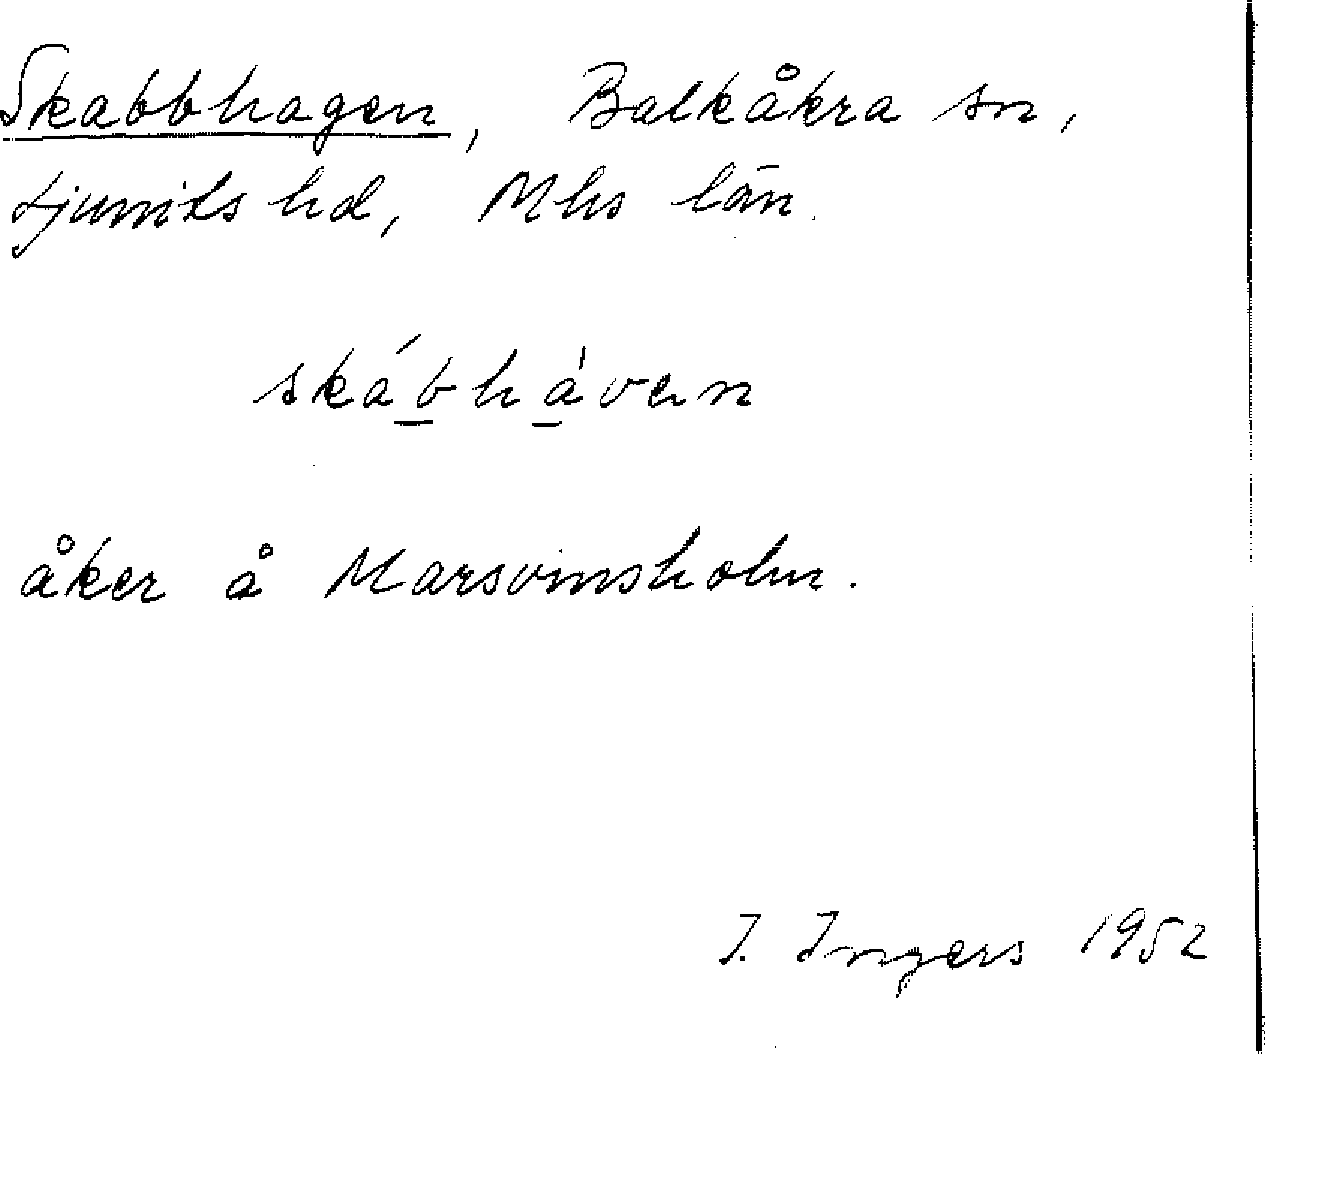 Skabbhagen, Balkåkra sn,
Ljunits hd, Mhs län.
skábhàven
åker å Marsvinsholm.
I. Ingers 1952